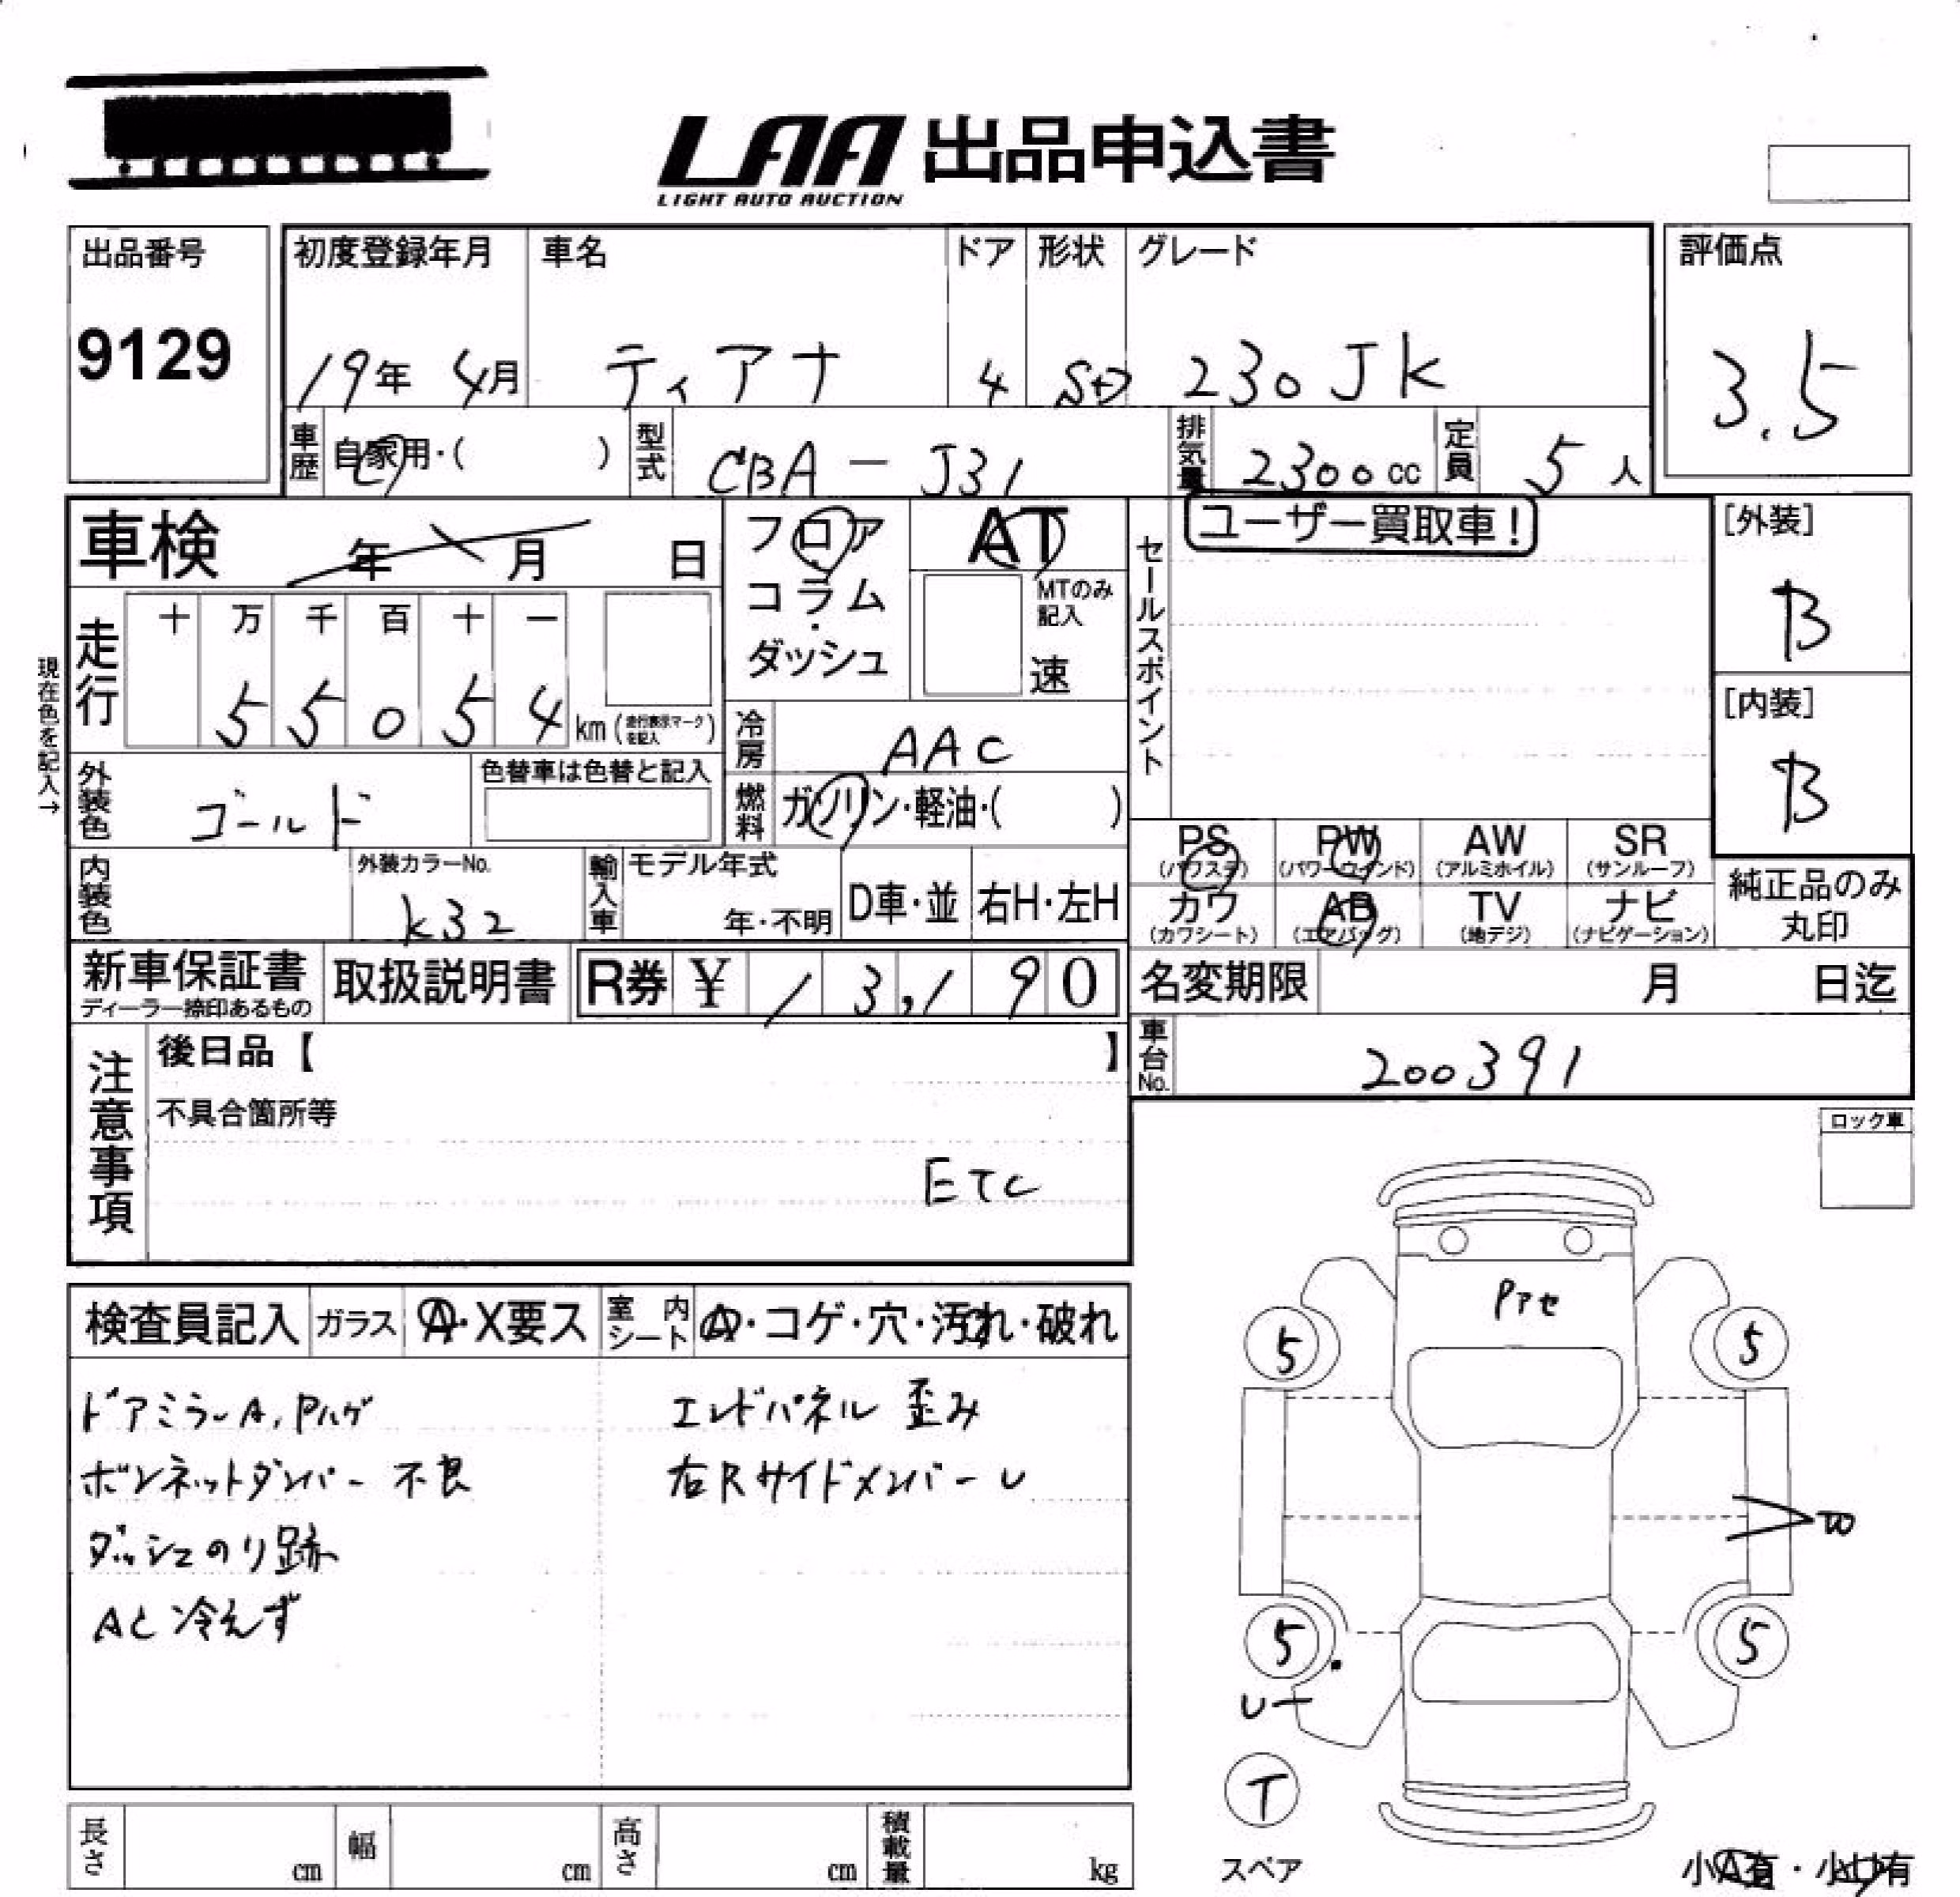 LAA 出品申込書
LIGHT AUTO AUCTION
出品番号
9129
初度登録年月 車名 ドア 形状 グレード
19年 4月 ティアナ 4 SD 230JK
評価点
3.5
車歴 自家用・( ) 型式 CBA-J31 排気量 2300cc 定員 5人
車検 年 月 日
フロア・コラム・ダッシュ
AT
MTのみ記入
速
セールスポイント
ユーザー買取車!
[外装]
B
[内装]
B
現在色を記入→
走行 十 万 千 百 十 一
5 5 0 5 4 km (走行表示マークを記入)
冷房 AAC
外装色 ゴールド 色替車は色替と記入
燃料 ガソリン・軽油・( )
PS (パワステ) PW (パワーウインド) AW (アルミホイル) SR (サンルーフ)
カワ (カワシート) AB (エアバッグ) TV (地デジ) ナビ (ナビゲーション)
純正品のみ丸印
内装色 外装カラーNo. K32
輸入車 モデル年式 年・不明 D車・並 右H・左H
新車保証書 ディーラー捺印あるもの
取扱説明書
R券 ¥ 13,190
名変期限 月 日迄
車台No. 200391
注意事項
後日品【 】
不具合箇所等
ETC
ロック車
検査員記入 ガラス A・X要ス 室内シート A・コゲ・穴・汚れ・破れ
ドアミラーA,Pハゲ
ボンネットダンパー不良
ダッシュのり跡
AC冷えず
エンドパネル 歪み
右Rサイドメンバー U
Pアセ
5
5
W
5
5
U
T
スペア
長さ cm 幅 cm 高さ cm 積載量 kg
小A有・小U有